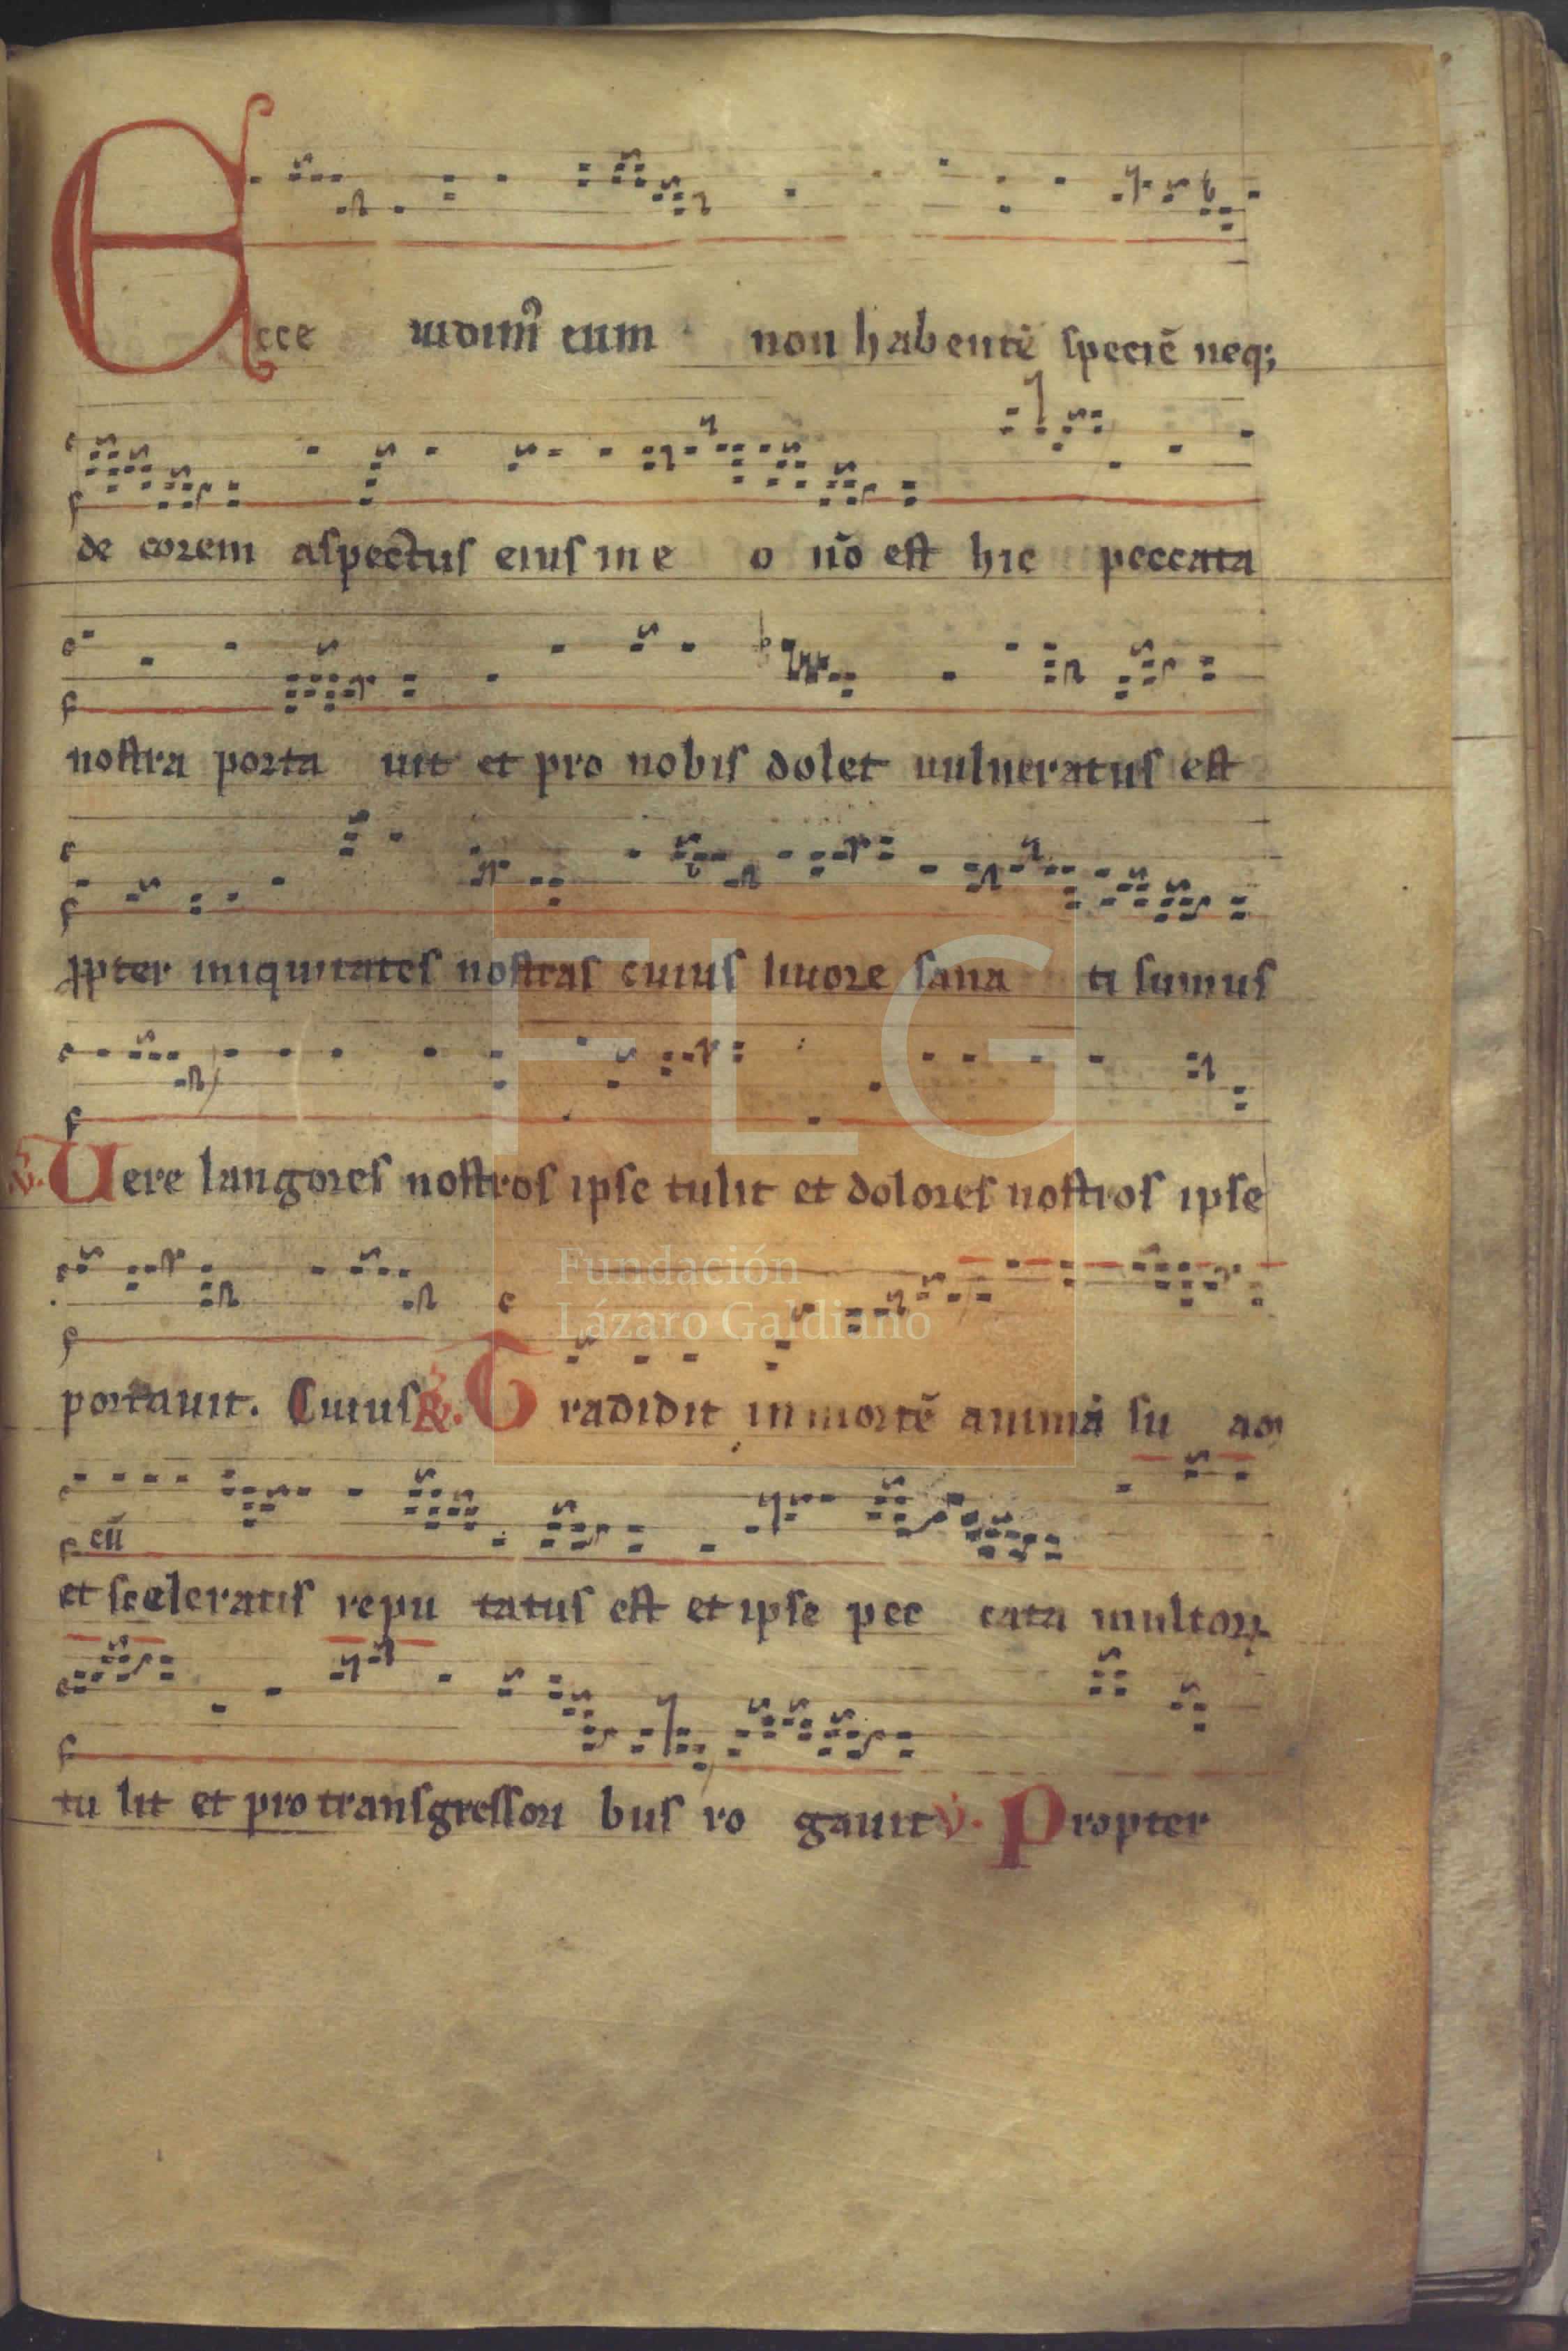 Ecce uidim᷒ eum non habentē speciē neq;
de corem aspectus eius in e o nō est hic peccata
nostra porta uit et pro nobis dolet uulneratus est
ꝓpter iniquitates nostras cuius liuore sana ti sumus
℣. Uere langores nostros ipse tulit et dolores nostros ipse
portauit. Cuius ℟. Tradidit in mortē animā su am
cū
et sceleratis repu tatus est et ipse pec cata multoꝝ
tu lit et pro transgressori bus ro gauit ℣. Propter
FLG
Fundación
Lázaro Galdiano